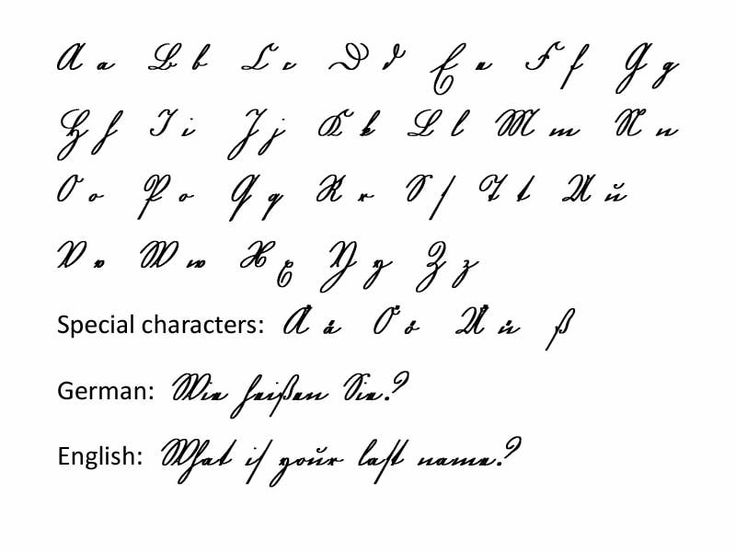 A a B b C c D d E e F f G g
H h I i J j K k L l M m N n
O o P o Q q R r S ſ T t U u
V v W w X x Y y Z z
Special characters: Ä ä Ö ö Ü ü ß
German: Wie heißen Sie?
English: What iſ your laſt name?